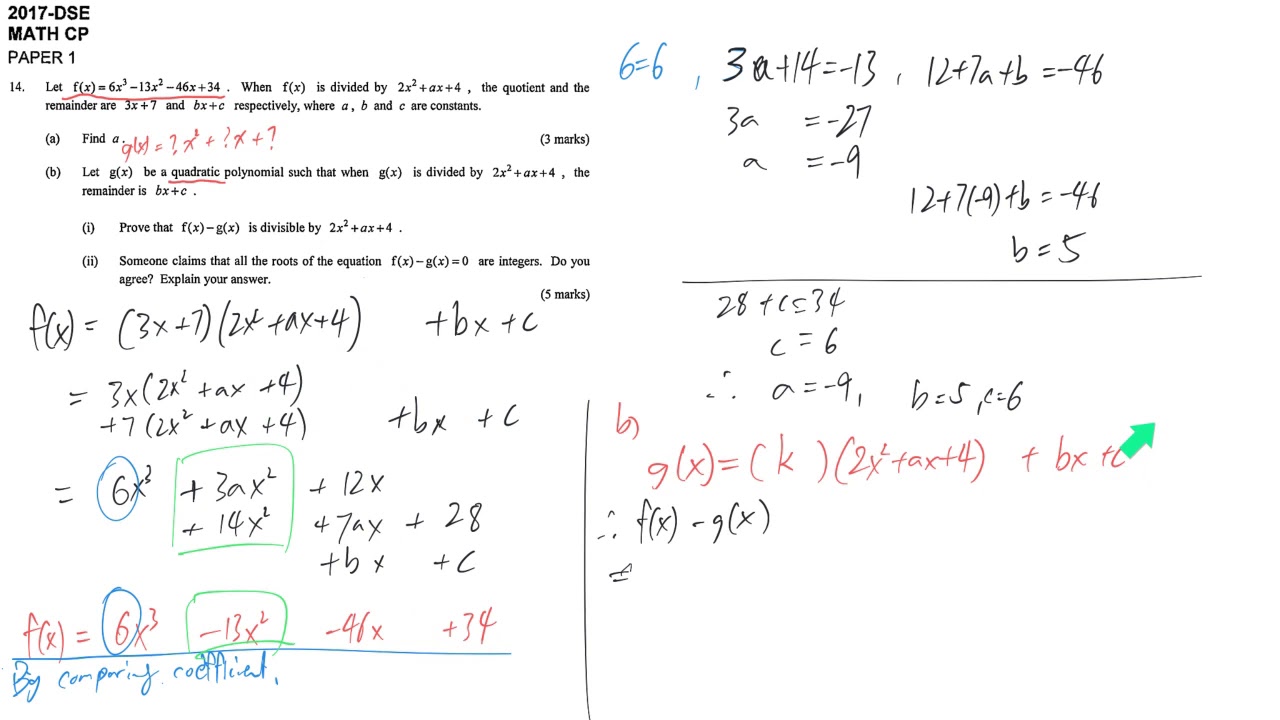 2017-DSE
MATH CP
PAPER 1
14. Let f(x) = 6x³ − 13x² − 46x + 34 . When f(x) is divided by 2x² + ax + 4 , the quotient and the
remainder are 3x + 7 and bx + c respectively, where a , b and c are constants.
(a) Find a . (3 marks)
g(x) = ?x² + ?x + ?
(b) Let g(x) be a quadratic polynomial such that when g(x) is divided by 2x² + ax + 4 , the
remainder is bx + c .
(i) Prove that f(x) − g(x) is divisible by 2x² + ax + 4 .
(ii) Someone claims that all the roots of the equation f(x) − g(x) = 0 are integers. Do you
agree? Explain your answer.
(5 marks)
f(x) = (3x+7)(2x²+ax+4) +bx+c
= 3x(2x²+ax+4)
+7(2x²+ax+4) +bx +c
= 6x³ +3ax² +12x
+14x² +7ax +28
+bx +c
f(x) = 6x³ −13x² −46x +34
By comparing coefficient,
6=6 , 3a+14=−13 , 12+7a+b=−46
3a =−27
a =−9
12+7(−9)+b=−46
b=5
28+c=34
c=6
∴ a=−9, b=5, c=6
b)
g(x)=(k )(2x²+ax+4) +bx+c
∴ f(x)−g(x)
=